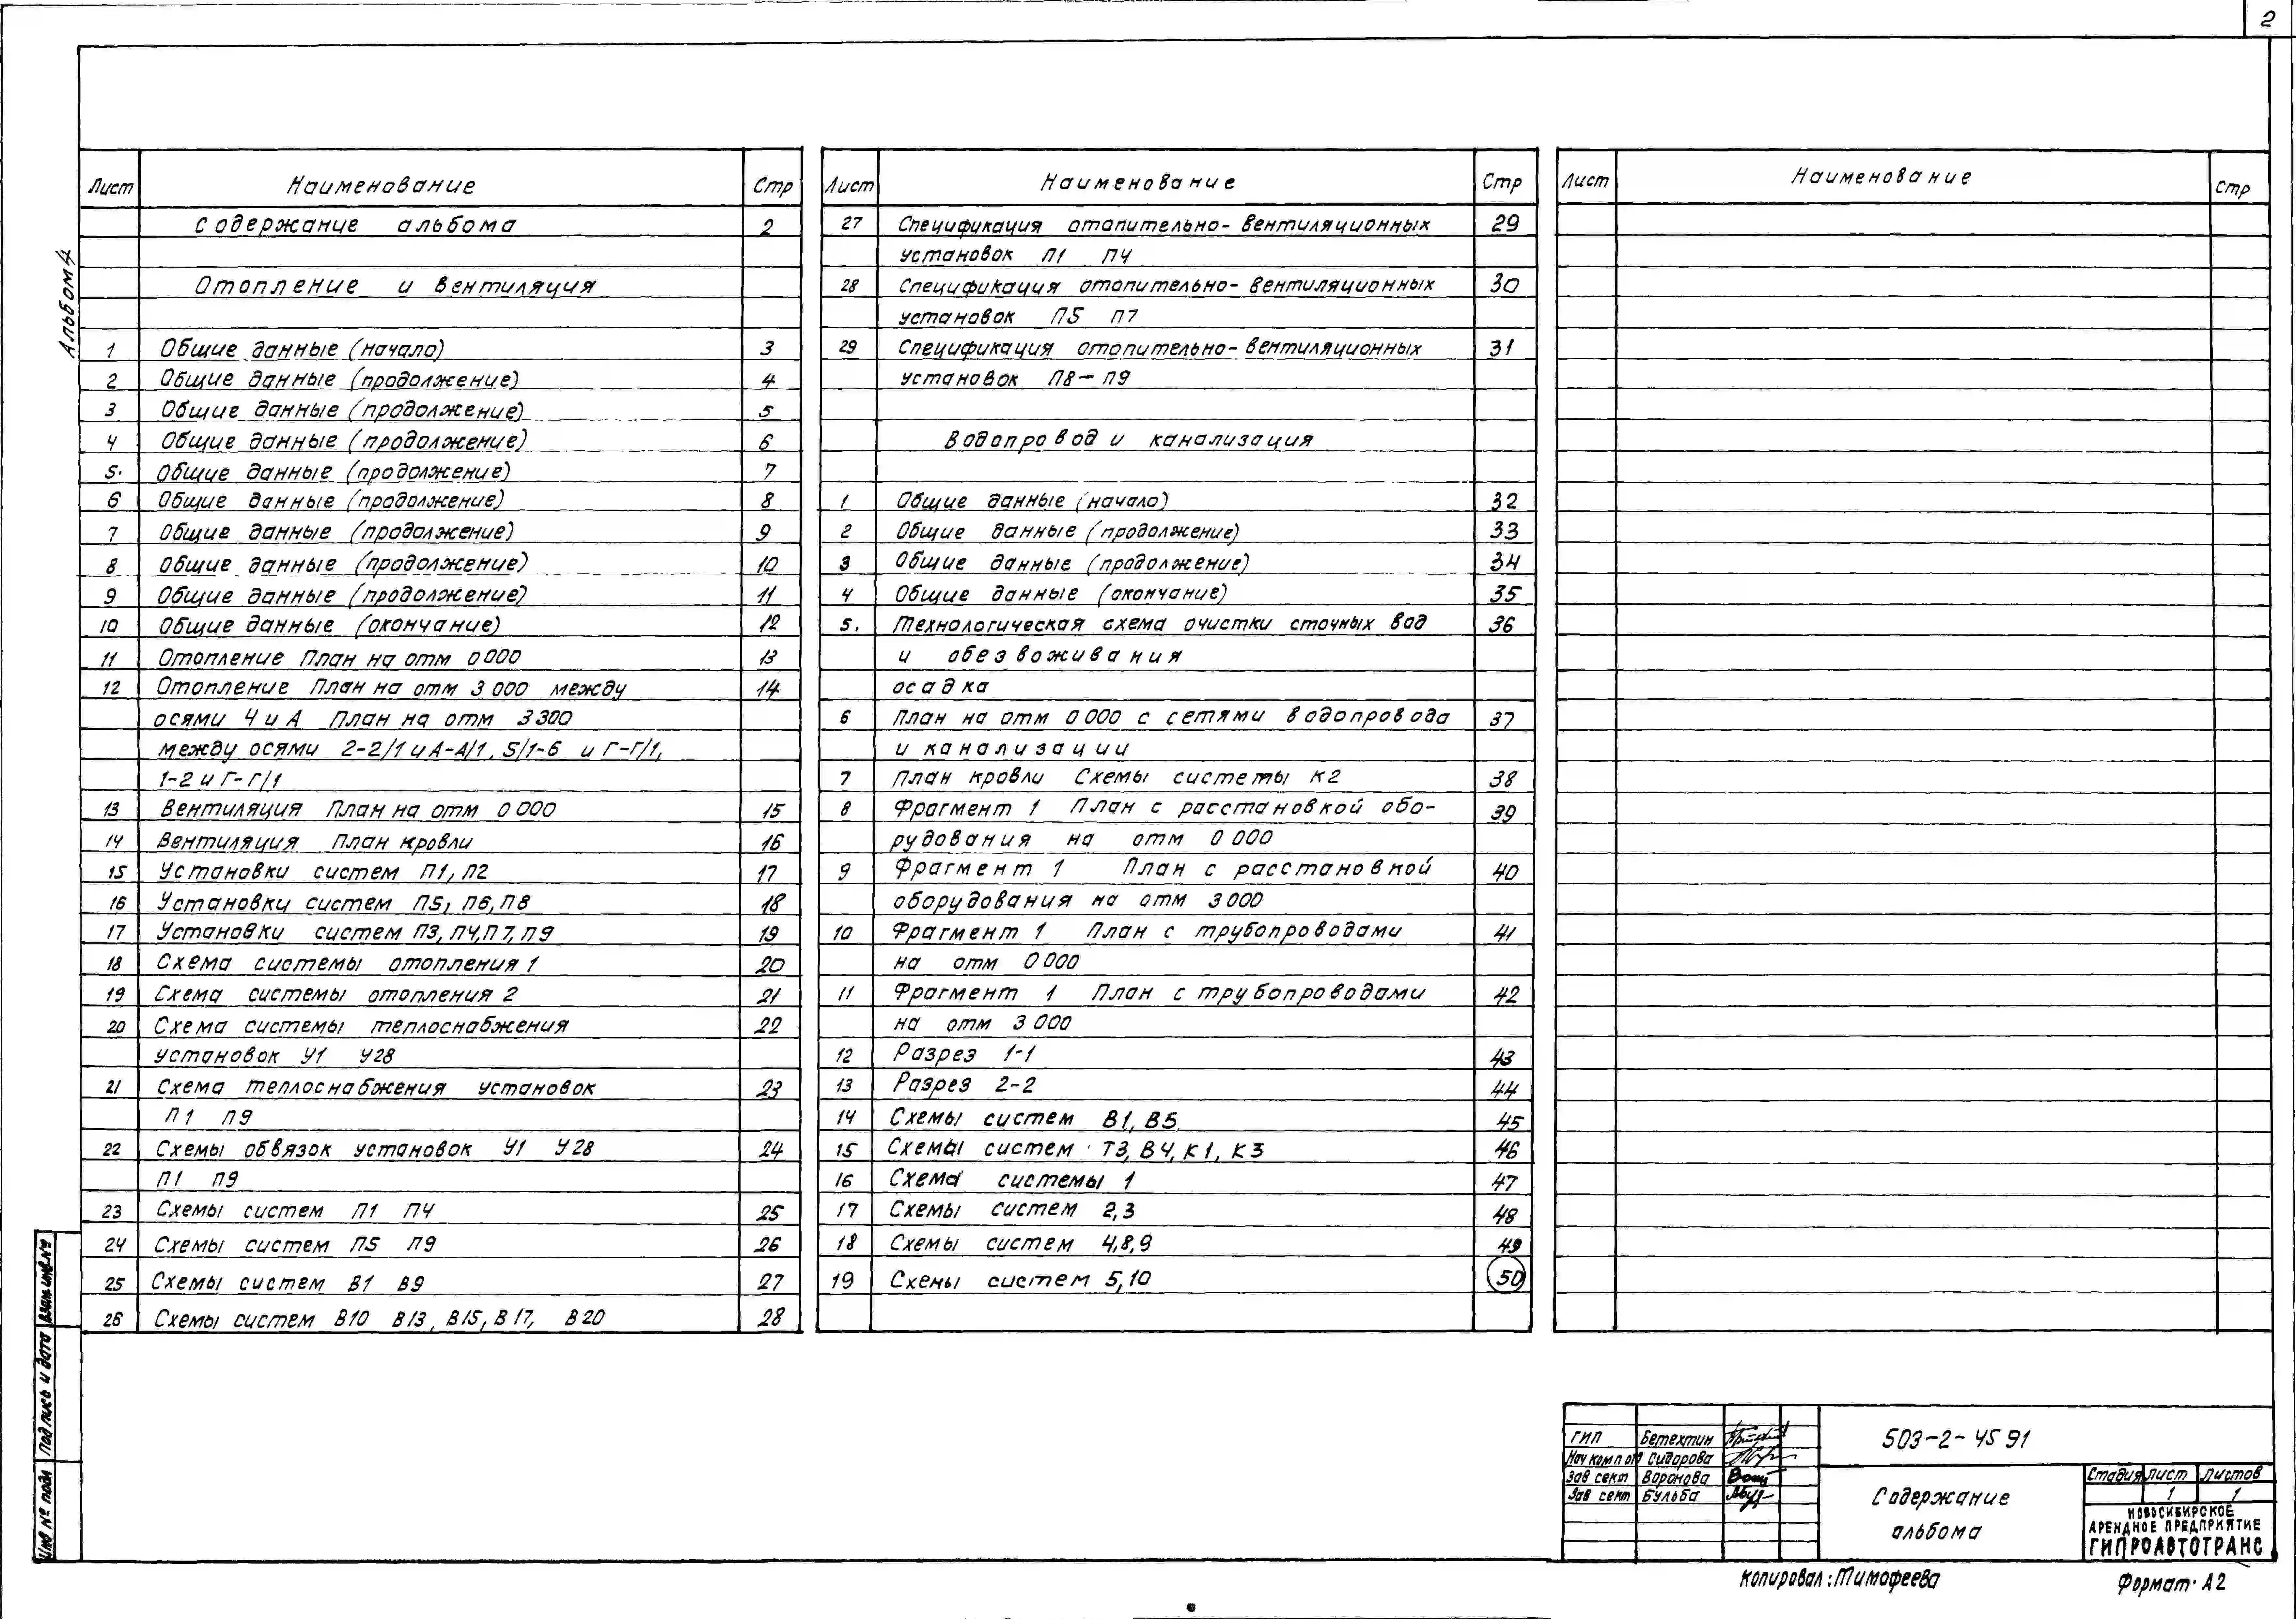 2
Альбом 4
Лист Наименование Стр
Содержание альбома 2
Отопление и вентиляция
1 Общие данные (начало) 3
2 Общие данные (продолжение) 4
3 Общие данные (продолжение) 5
4 Общие данные (продолжение) 6
5. Общие данные (продолжение) 7
6 Общие данные (продолжение) 8
7 Общие данные (продолжение) 9
8 Общие данные (продолжение) 10
9 Общие данные (продолжение) 11
10 Общие данные (окончание) 12
11 Отопление План на отм 0 000 13
12 Отопление План на отм 3 000 между 14
осями 4 и А План на отм 3 300
между осями 2-2/1 и А-А/1, 5/1-6 и Г-Г/1,
1-2 и Г-Г/1
13 Вентиляция План на отм 0 000 15
14 Вентиляция План кровли 16
15 Установки систем П1, П2 17
16 Установки систем П5, П6, П8 18
17 Установки систем П3, П4, П7, П9 19
18 Схема системы отопления 1 20
19 Схема системы отопления 2 21
20 Схема системы теплоснабжения 22
установок У1 У28
21 Схема теплоснабжения установок 23
П1 П9
22 Схемы обвязок установок У1 У28 24
П1 П9
23 Схемы систем П1 П4 25
24 Схемы систем П5 П9 26
25 Схемы систем В1 В9 27
26 Схемы систем В10 В13, В15, В17, В20 28
Лист Наименование Стр
27 Спецификация отопительно-вентиляционных 29
установок П1 П4
28 Спецификация отопительно-вентиляционных 30
установок П5 П7
29 Спецификация отопительно-вентиляционных 31
установок П8-П9
Водопровод и канализация
1 Общие данные (начало) 32
2 Общие данные (продолжение) 33
3 Общие данные (продолжение) 34
4 Общие данные (окончание) 35
5. Технологическая схема очистки сточных вод 36
и обезвоживания
осадка
6 План на отм 0 000 с сетями водопровода 37
и канализации
7 План кровли Схемы системы К2 38
8 Фрагмент 1 План с расстановкой обо- 39
рудования на отм 0 000
9 Фрагмент 1 План с расстановкой 40
оборудования на отм 3 000
10 Фрагмент 1 План с трубопроводами 41
на отм 0 000
11 Фрагмент 1 План с трубопроводами 42
на отм 3 000
12 Разрез 1-1 43
13 Разрез 2-2 44
14 Схемы систем В1, В5 45
15 Схемы систем Т3, В4, К1, К3 46
16 Схема системы 1 47
17 Схемы систем 2,3 48
18 Схемы систем 4,8,9 49
19 Схемы систем 5,10 50
Лист Наименование Стр
Инв № подл Подпись и дата Взам инв №
ГИП Бетехтин
Нач комп от Сидорова
Зав сект Воронова
Зав сект Бульба
503-2-45 91
Содержание
альбома
Стадия Лист Листов
1 1
НОВОСИБИРСКОЕ
АРЕНДНОЕ ПРЕДПРИЯТИЕ
ГИПРОАВТОТРАНС
Копировал: Тимофеева
Формат А2